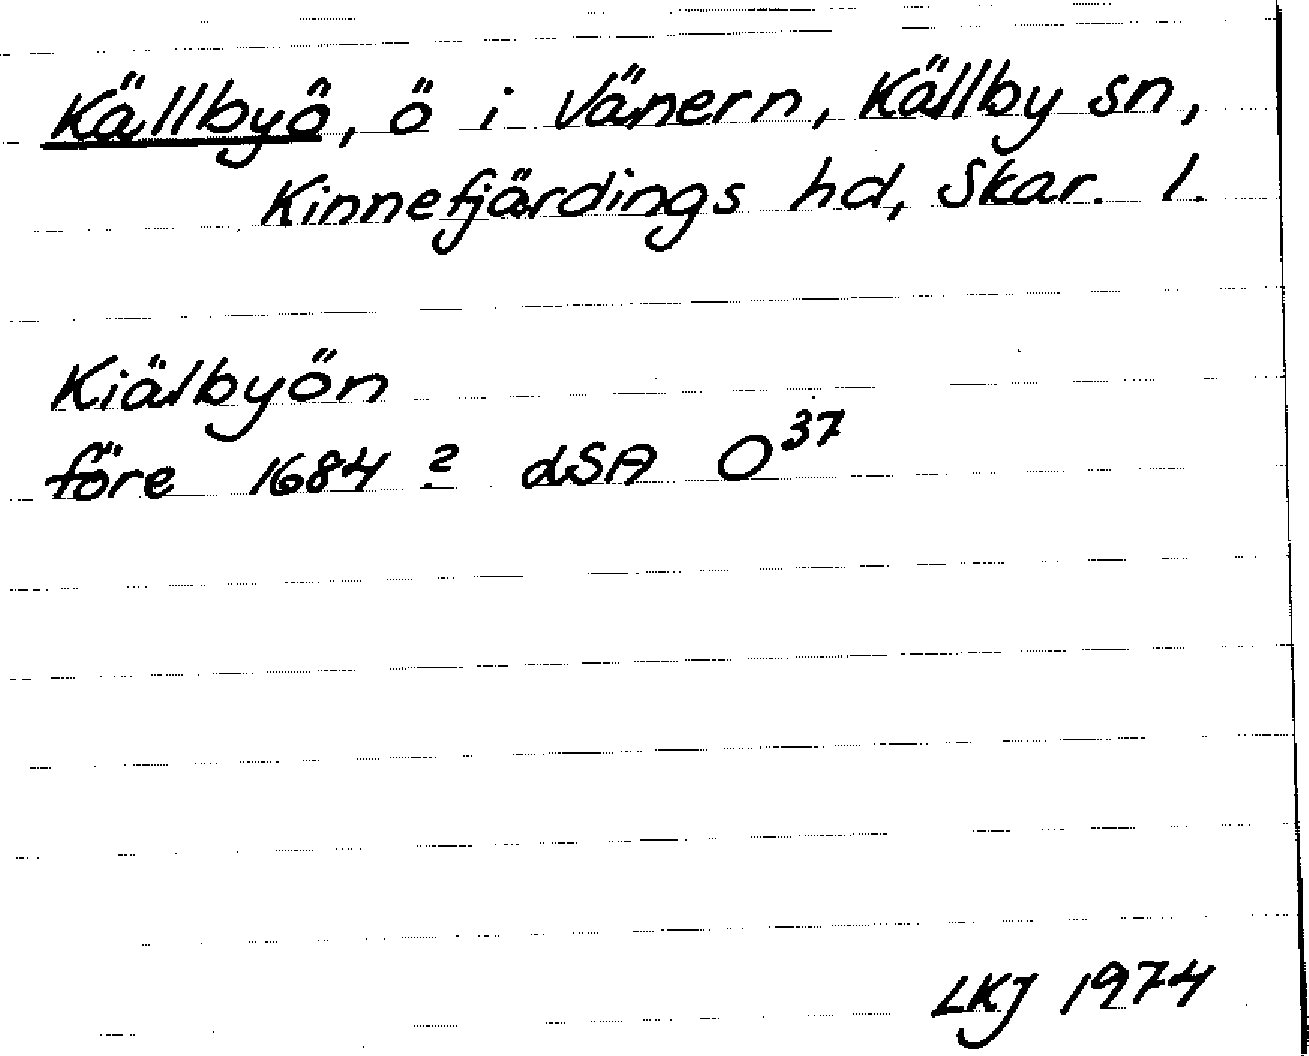 Källbyö, ö i Vänern, Källby sn,
Kinnefjärdings hd, Skar. l.
Kiälbyön
före 1684 ? dSA O³⁷
LKJ 1974